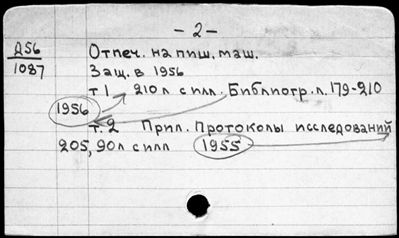 - 2 -
Д56
1087
Отпеч. на пиш. маш.
Защ. в 1956
т 1, 210л с илл. Библиогр. л. 179-210
1956
т. 2 Прил. Протоколы исследований
205, 90л с илл 1955